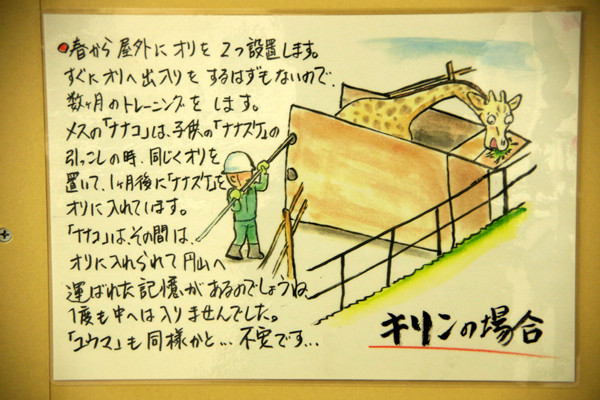 ●春から屋外にオリを2つ設置します。
すぐにオリへ出入りをするはずもないので、
数ヶ月のトレーニングをします。
メスの「ナナコ」は、子供の「ナナスケ」の
引っこしの時、同じくオリを
置いて、1ヶ月後に「ナナスケ」を
オリに入れてします。
「ナナコ」は、その間は、
オリに入れられて円山へ
運ばれた記憶があるのでしょうね、
1度も中へは入りませんでした。
「ユウマ」も同様かと…不安です…
キリンの場合